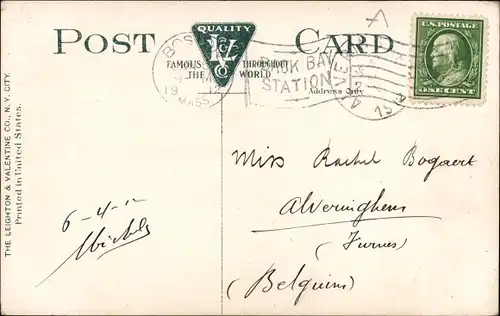 POST CARD
QUALITY
V & Co
FAMOUS THROUGHOUT
THE WORLD
Address Only
BOSTON
MASS.
BACK BAY
STATION
U.S. POSTAGE
ONE CENT
THE LEIGHTON & VALENTINE CO., N. Y. CITY.
Printed in United States.
6-4-12
Miss Rachel Bogaert
Alveringhem
(Furnes)
(Belgium)